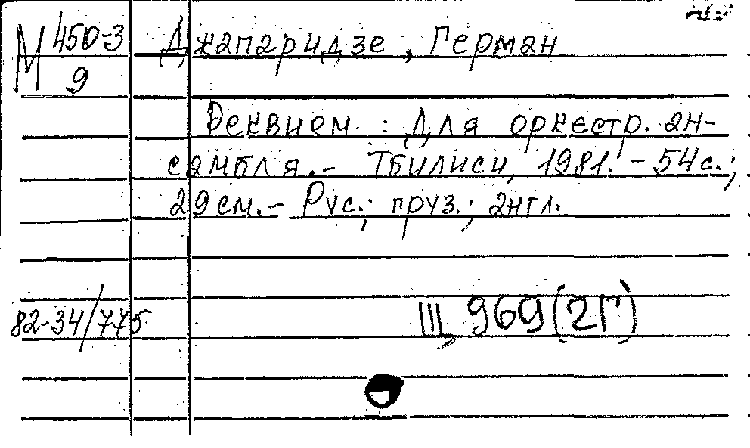 М 450-3
9
Джапаридзе, Герман
Реквием : Для оркестр. ан-
самбля.- Тбилиси, 1981. - 54с.;
29см.- Рус.; груз.; англ.
82-34/775
Щ969(2Г)